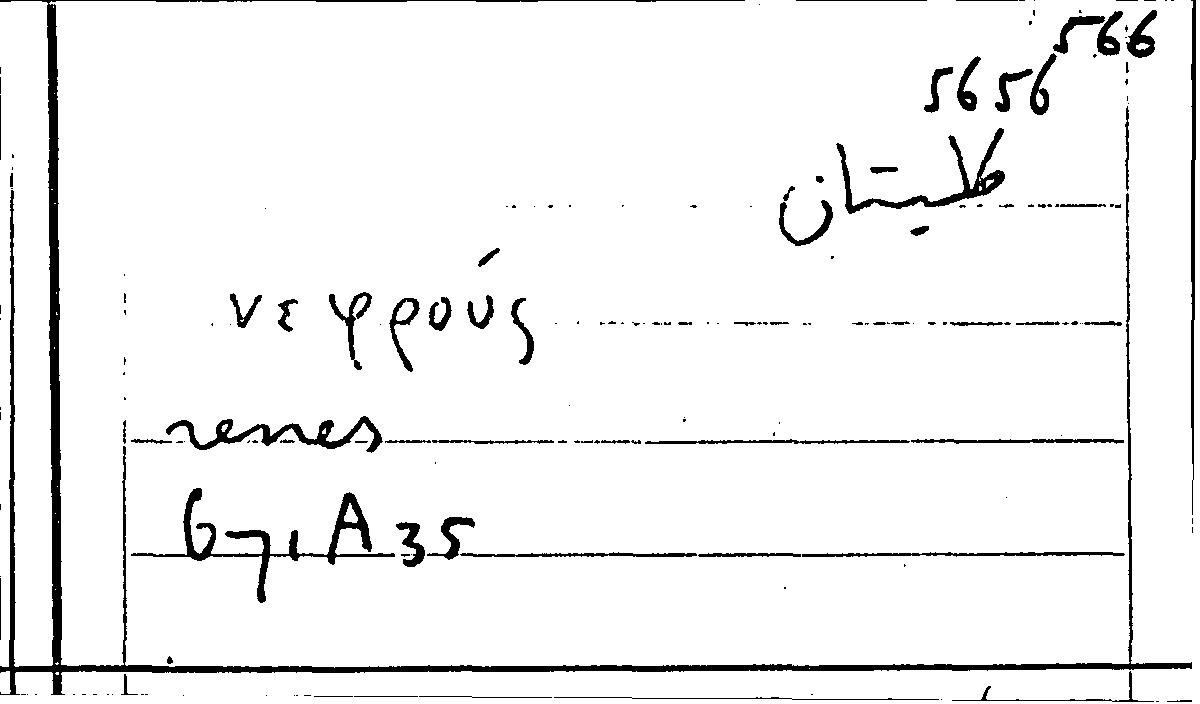 566
5656
كليتان
νεφρούς
renes
671 A 35